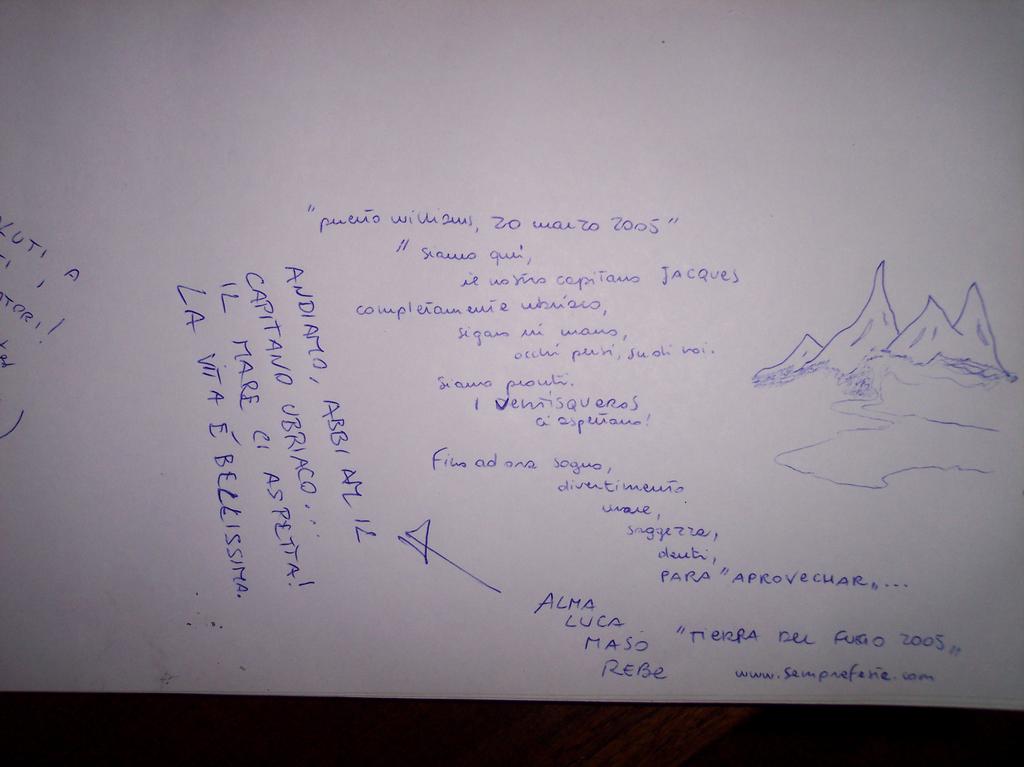 "puerto williams, 20 marzo 2005"
"siamo qui,
il nostro capitano JACQUES
completamente ubriaco,
sigaro in mano,
occhi persi, su di noi.
siamo pronti.
I VENTISQUEROS
ci aspettano!
Fino ad ora sogno,
divertimento
mare,
saggezza,
denti,
PARA "APROVECHAR"...
ALMA
LUCA
MASO
REBE
"TIERRA DEL FUEGO 2005"
www.semprefesie.com
ANDIAMO, ABBIAM IL
CAPITANO UBRIACO...
IL MARE CI ASPETTA!
LA VITA É BELLISSIMA.